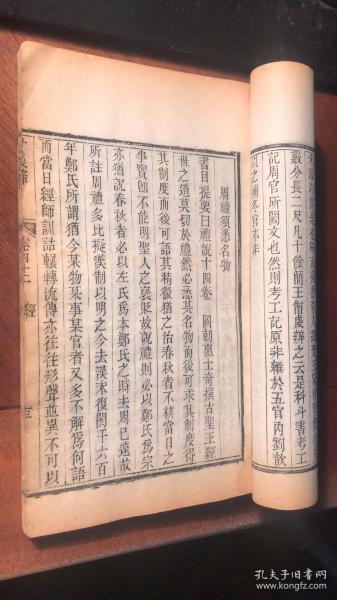 數分長二尺凡十餘簡王僧虔辨之云是科斗書考工
記周官所闕文也然則考工記原非雜於五官內劉歆
取之補冬官亦非
周禮須悉名物
書目提要曰禮說十四卷 國朝惠士奇撰古聖王經
世之道莫切於禮然必悉其名物而後可求其制度得
其制度而後可語其精微猶之治春秋者不核當日之
事實卽不能明聖人之襃貶故說禮則必以鄭氏爲宗
亦猶說春秋者必以左氏爲本鄭氏之時去周已遠故
所註周禮多比擬漢制以明之今去漢末復閱千六百
年鄭氏所謂猶今某物某事某官者又多不解爲何語
而當日經師訓詁輾轉流傳亦往往形聲並異不可以
經
孔夫子旧书网